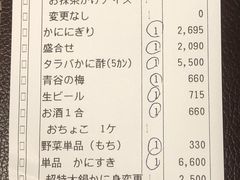 お抹茶かけアイス
変更なし 0
かににぎり 1 2,695
盛合せ 1 2,090
タラバかに酢(5カン) 1 5,500
青谷の梅 1 660
生ビール 1 715
お酒1合 1 660
おちょこ 1ケ
野菜単品(もち) 1 330
単品 かにすき 1 6,600
超特大鍋かに身変更 2,500